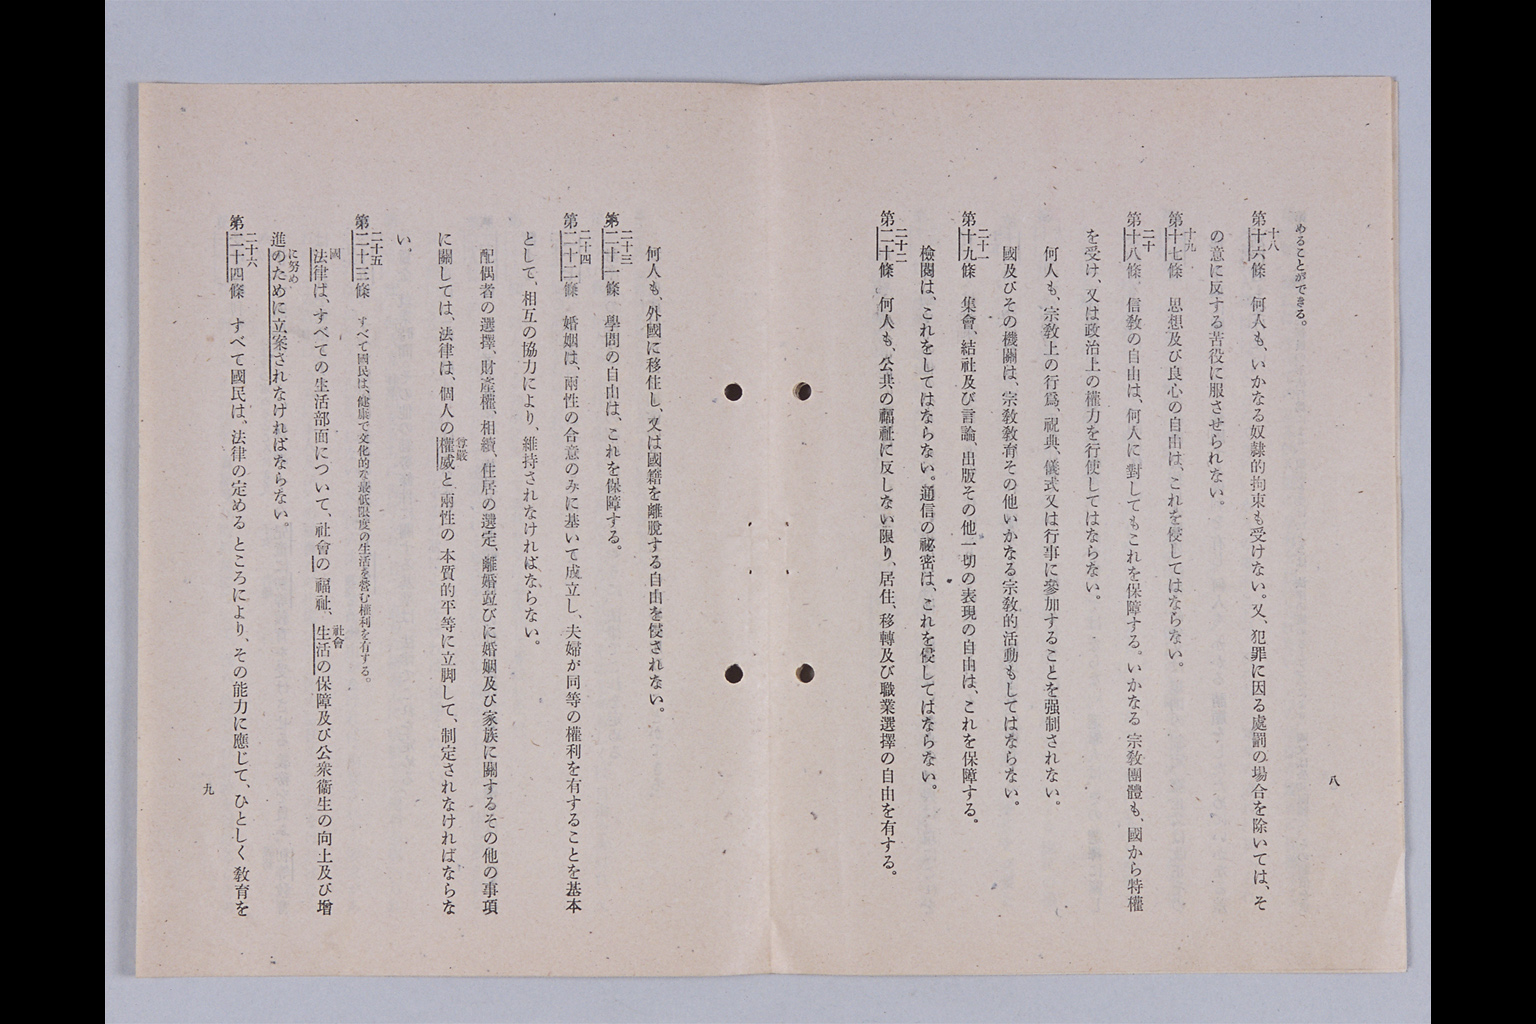 めることができる。
十八
第十六條　何人も、いかなる奴隷的拘束も受けない。又、犯罪に因る處罰の場合を除いては、そ
の意に反する苦役に服させられない。
十九
第十七條　思想及び良心の自由は、これを侵してはならない。
二十
第十八條　信敎の自由は、何人に對してもこれを保障する。いかなる宗敎團體も、國から特權
を受け、又は政治上の權力を行使してはならない。
何人も、宗敎上の行爲、祝典、儀式又は行事に參加することを强制されない。
國及びその機關は、宗敎敎育その他いかなる宗敎的活動もしてはならない。
二十一
第十九條　集會、結社及び言論、出版その他一切の表現の自由は、これを保障する。
檢閱は、これをしてはならない。通信の祕密は、これを侵してはならない。
二十二
第二十條　何人も、公共の福祉に反しない限り、居住、移轉及び職業選擇の自由を有する。
八
何人も、外國に移住し、又は國籍を離脫する自由を侵されない。
二十三
第二十一條　學問の自由は、これを保障する。
二十四
第二十二條　婚姻は、兩性の合意のみに基いて成立し、夫婦が同等の權利を有することを基本
として、相互の協力により、維持されなければならない。
配偶者の選擇、財產權、相續、住居の選定、離婚竝びに婚姻及び家族に關するその他の事項
尊嚴
に關しては、法律は、個人の權威と兩性の本質的平等に立脚して、制定されなければならな
い。
二十五
第二十三條　すべて國民は、健康で文化的な最低限度の生活を營む權利を有する。
國　社會
法律は、すべての生活部面について、社會の福祉、生活の保障及び公衆衞生の向上及び增
に努め
進のために立案されなければならない。
二十六
第二十四條　すべて國民は、法律の定めるところにより、その能力に應じて、ひとしく敎育を
九